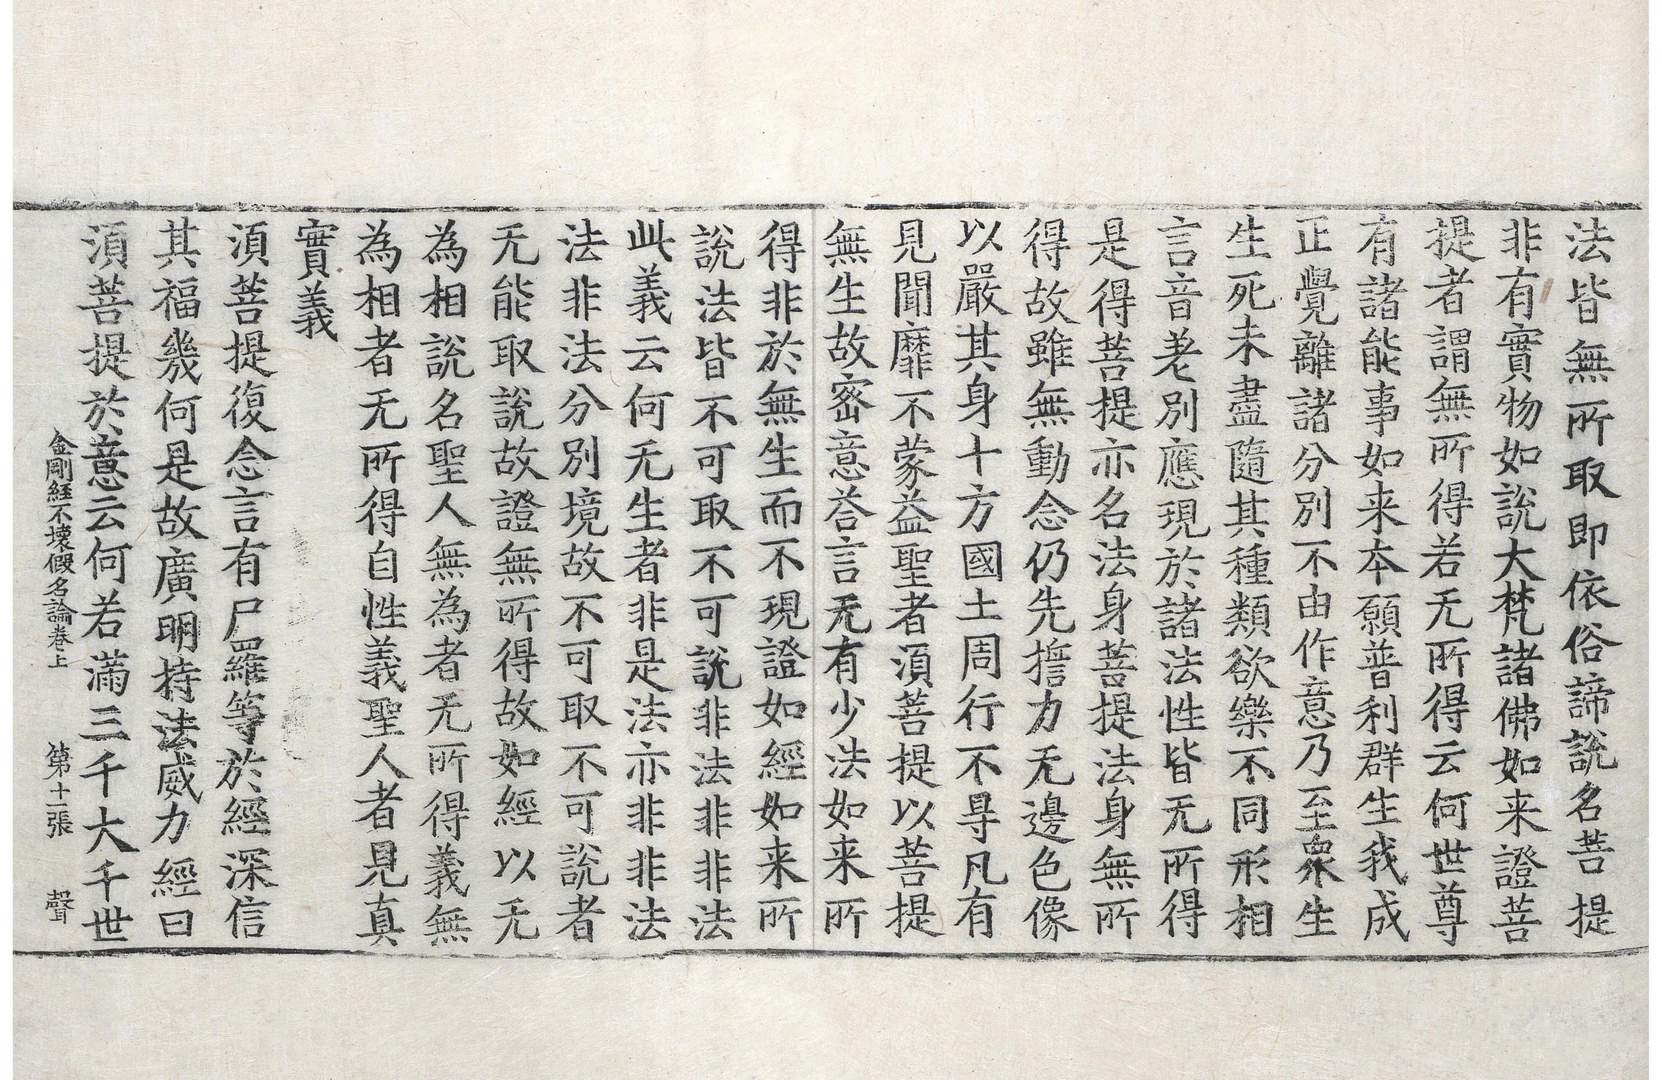 法皆無所取即依俗諦說名菩提
非有實物如說大梵諸佛如来證菩
提者謂無所得若无所得云何世尊
有諸能事如来本願普利群生我成
正覺離諸分別不由作意乃至衆生
生死未盡隨其種類欲樂不同形相
言音差別應現於諸法性皆无所得
是得菩提亦名法身菩提法身無所
得故雖無動念仍先擔力无邊色像
以嚴其身十方國土周行不㝵凡有
見聞靡不蒙益聖者湏菩提以菩提
無生故密意荅言无有少法如来所
得非於無生而不現證如經如来所
說法皆不可取不可說非法非非法
此義云何无生者非是法亦非非法
法非法分別境故不可取不可說者
无能取說故證無所得故如經以无
為相說名聖人無為者无所得義無
為相者无所得自性義聖人者見真
實義
湏菩提復念言有尸羅等於經深信
其福幾何是故廣明持法威力經曰
湏菩提於意云何若滿三千大千世
金剛經不壞假名論卷上 第十一張 聲